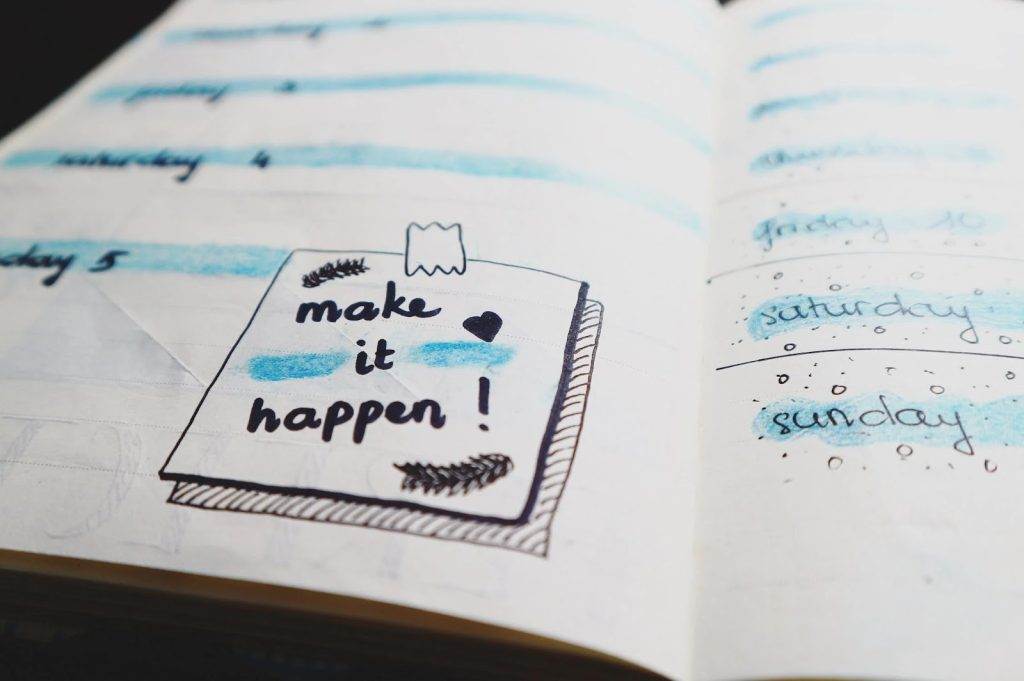 friday 3
saturday 4
day 5
make
it
happen !
friday 10
saturday
sunday